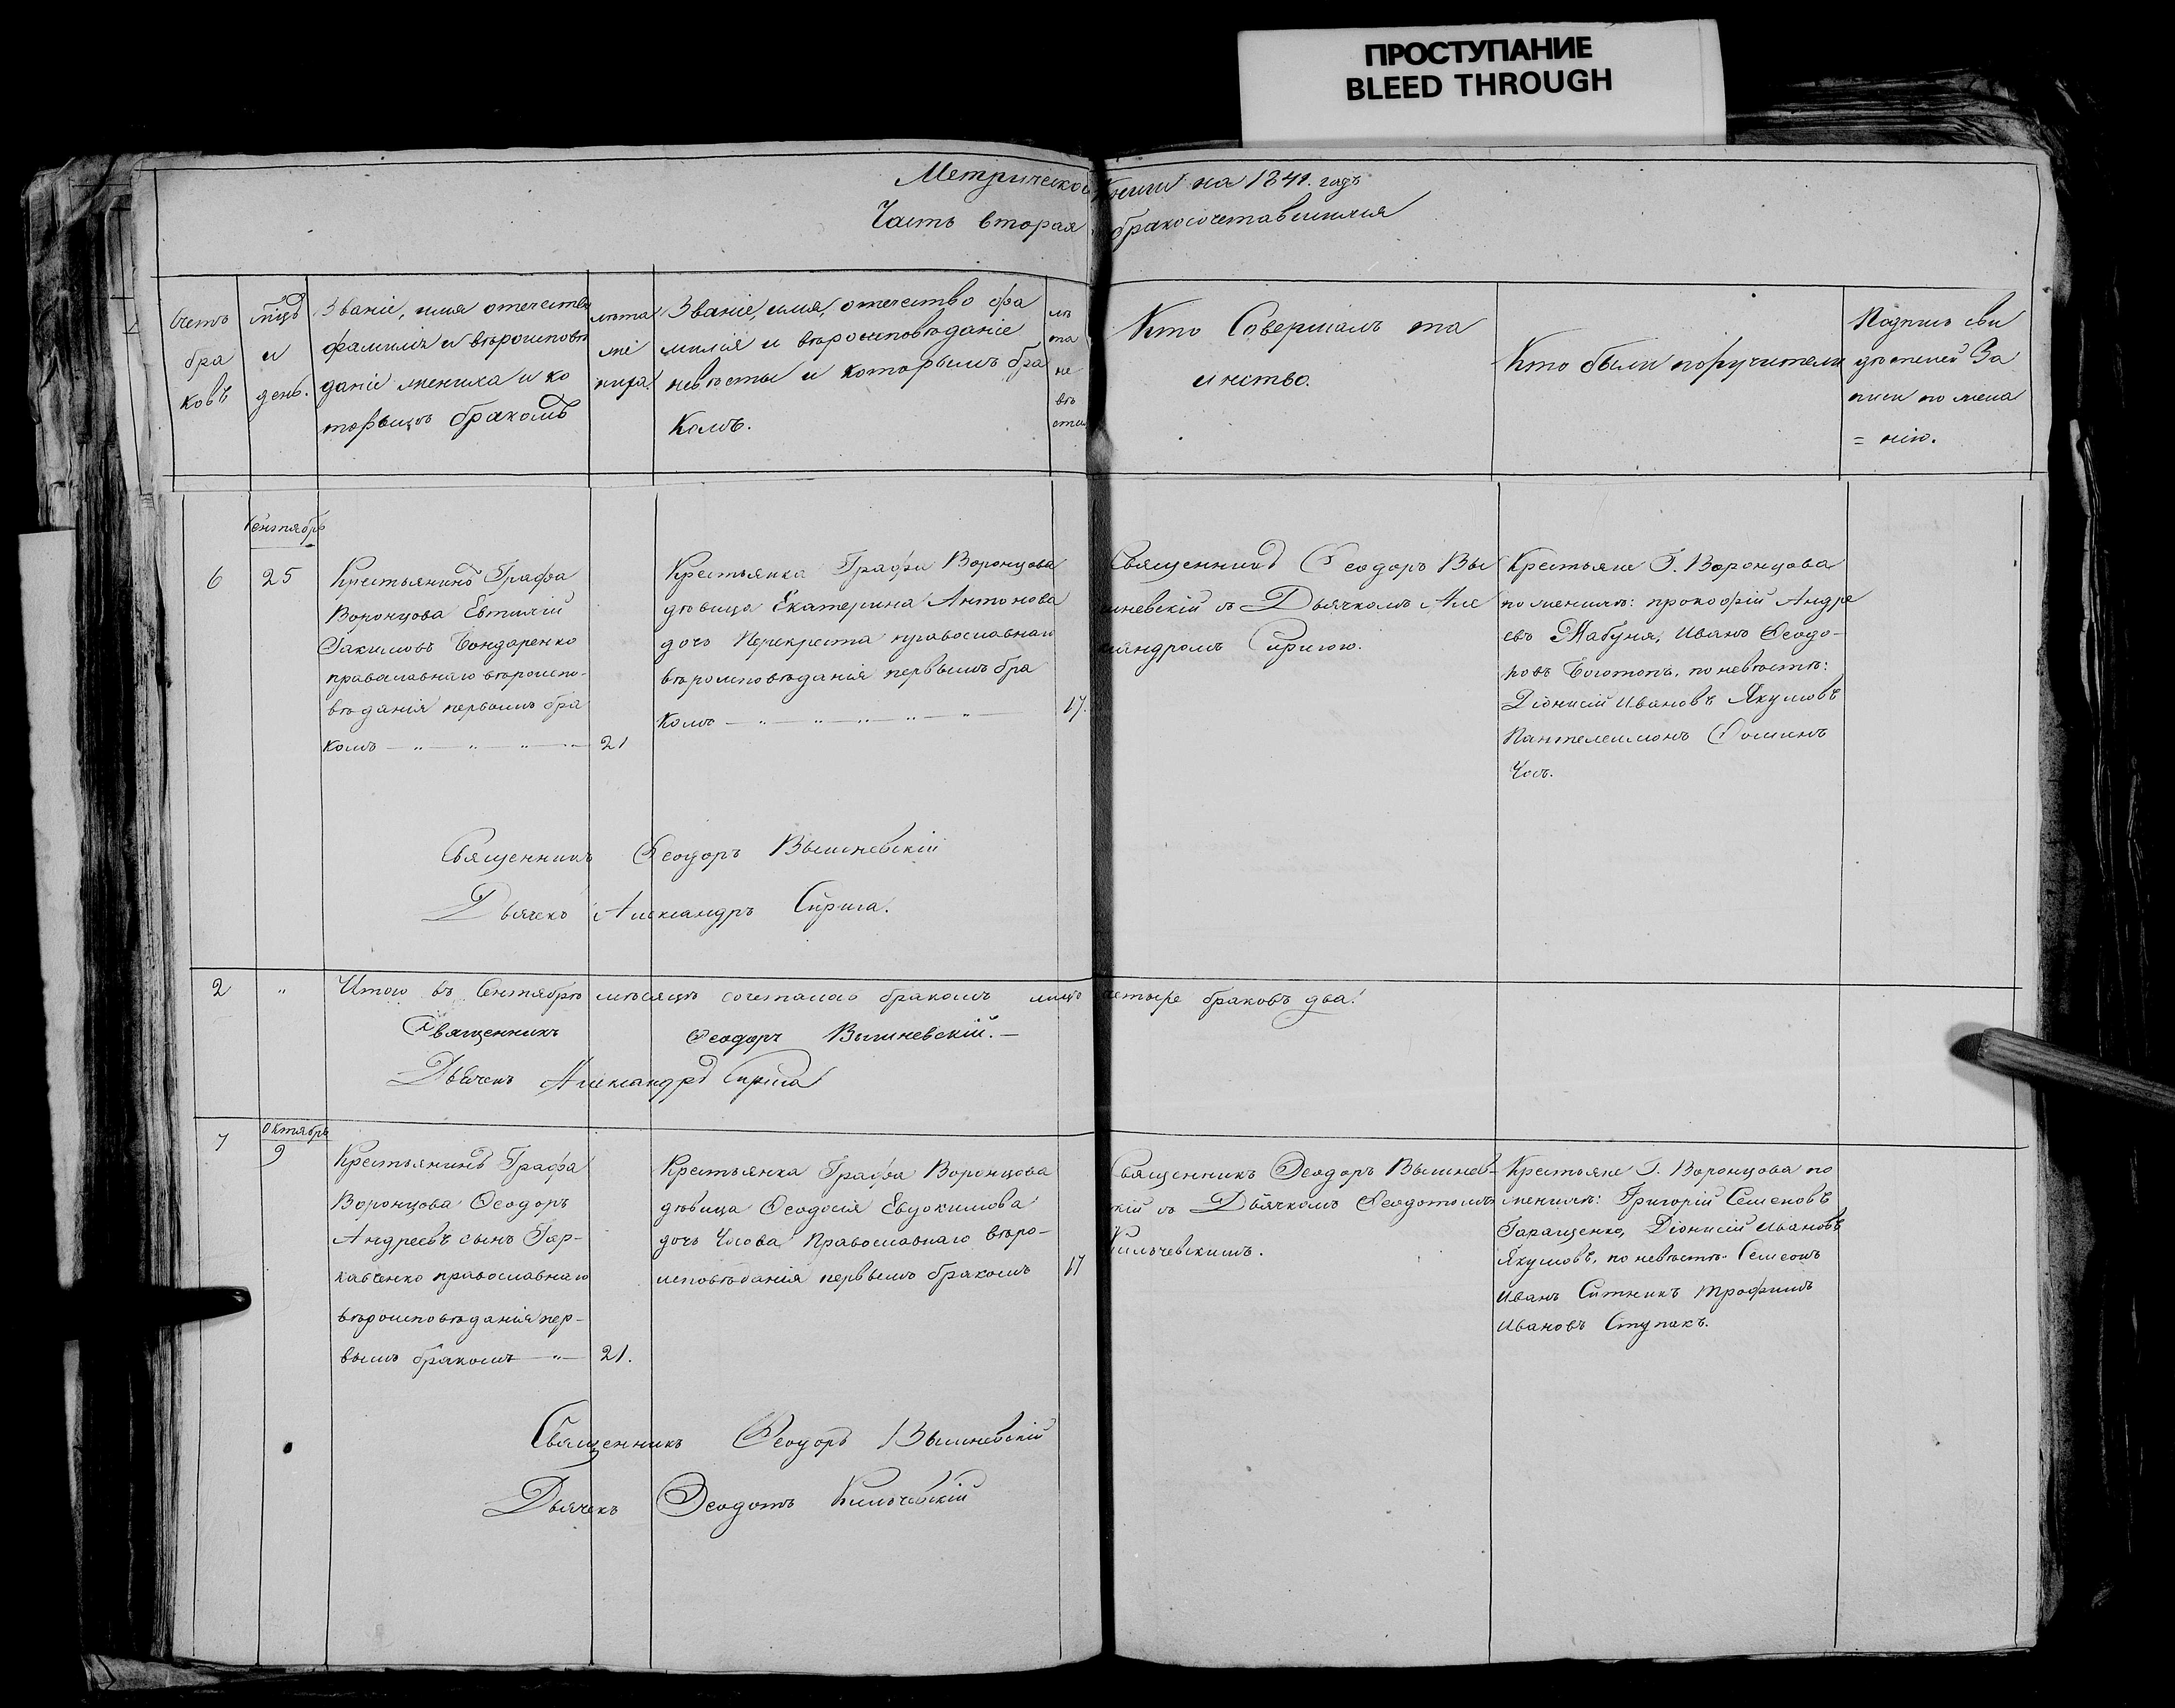 ПРОСТУПАНИЕ
BLEED THROUGH
Метрической Книги на 1841. годъ
Часть вторая бракосочетавшихся
Счетъ
бра
ковъ
мцъ
и
день.
Званіе, имя отечество
фамилія и вѣроисповѣ
даніе жениха и ко
торымъ бракомъ
лѣта
же
ниха.
Званіе, имя, отечество фа
милія и вѣроисповѣданіе
невѣсты и которымъ бра
комъ.
лѣ
та
не
вѣ
сты
Кто Совершалъ та
инство.
Кто были поручители
Подпись сви
дѣтелей За
писи по жела
= нію.
Сентябрь
6
25
Крестьянинъ Графа
Воронцова Евтихій
Іакимовъ Бондаренко
православнаго вѣроиспо-
вѣданія первымъ бра
комъ
21
Крестьянка Графа Воронцова
дѣвица Екатерина Антонова
дочь Перехреста православнаго
вѣроисповѣданія первымъ бра
комъ
17.
Священникъ Ѳеодоръ Вы
шневскій съ Дьячкомъ Але
ксандромъ Сиригою.
Крестьяне Г. Воронцова
по женихѣ: прокофій Андре
евъ Табуня, Иванъ Ѳеодо-
ровъ по невѣстѣ:
Діонисій Ивановъ Якумовъ
Пантелеимонъ Ѳоминъ
Чос.
Священникъ Ѳеодоръ Вышневскій
Дьячекъ Александръ Сирига.
2
Итого въ Сентябрѣ мѣсяцѣ сочеталось бракомъ лицъ четыре браковъ два.
Священникъ Ѳеодоръ Вышневскій. —
Дьячекъ Александръ Сирига
7
Октябрь
9
Крестьянинъ Графа
Воронцова Ѳеодоръ
Андреевъ сынъ Гар-
кавченко православнаго
вѣроисповѣданія пер-
вымъ бракомъ
21.
Крестьянка Графа Воронцова
дѣвица Ѳеодосія Евдокимова
дочь Чосова Православнаго вѣро-
исповѣданія первымъ бракомъ
17
Священникъ Ѳеодоръ Вышнев-
скій съ Дьячкомъ Ѳеодотомъ
Кильчевскимъ.
Крестьяне Г. Воронцова по
женихѣ: Григорій Семеновъ
Гаращенко, Діонисій Ивановъ
Якумовъ, по невѣстѣ Семеонъ
Иванъ Ситникъ Трофимъ
Ивановъ Ступакъ.
Священникъ Ѳеодоръ Вышневскій
Дьячекъ Ѳеодотъ Кильчевскій